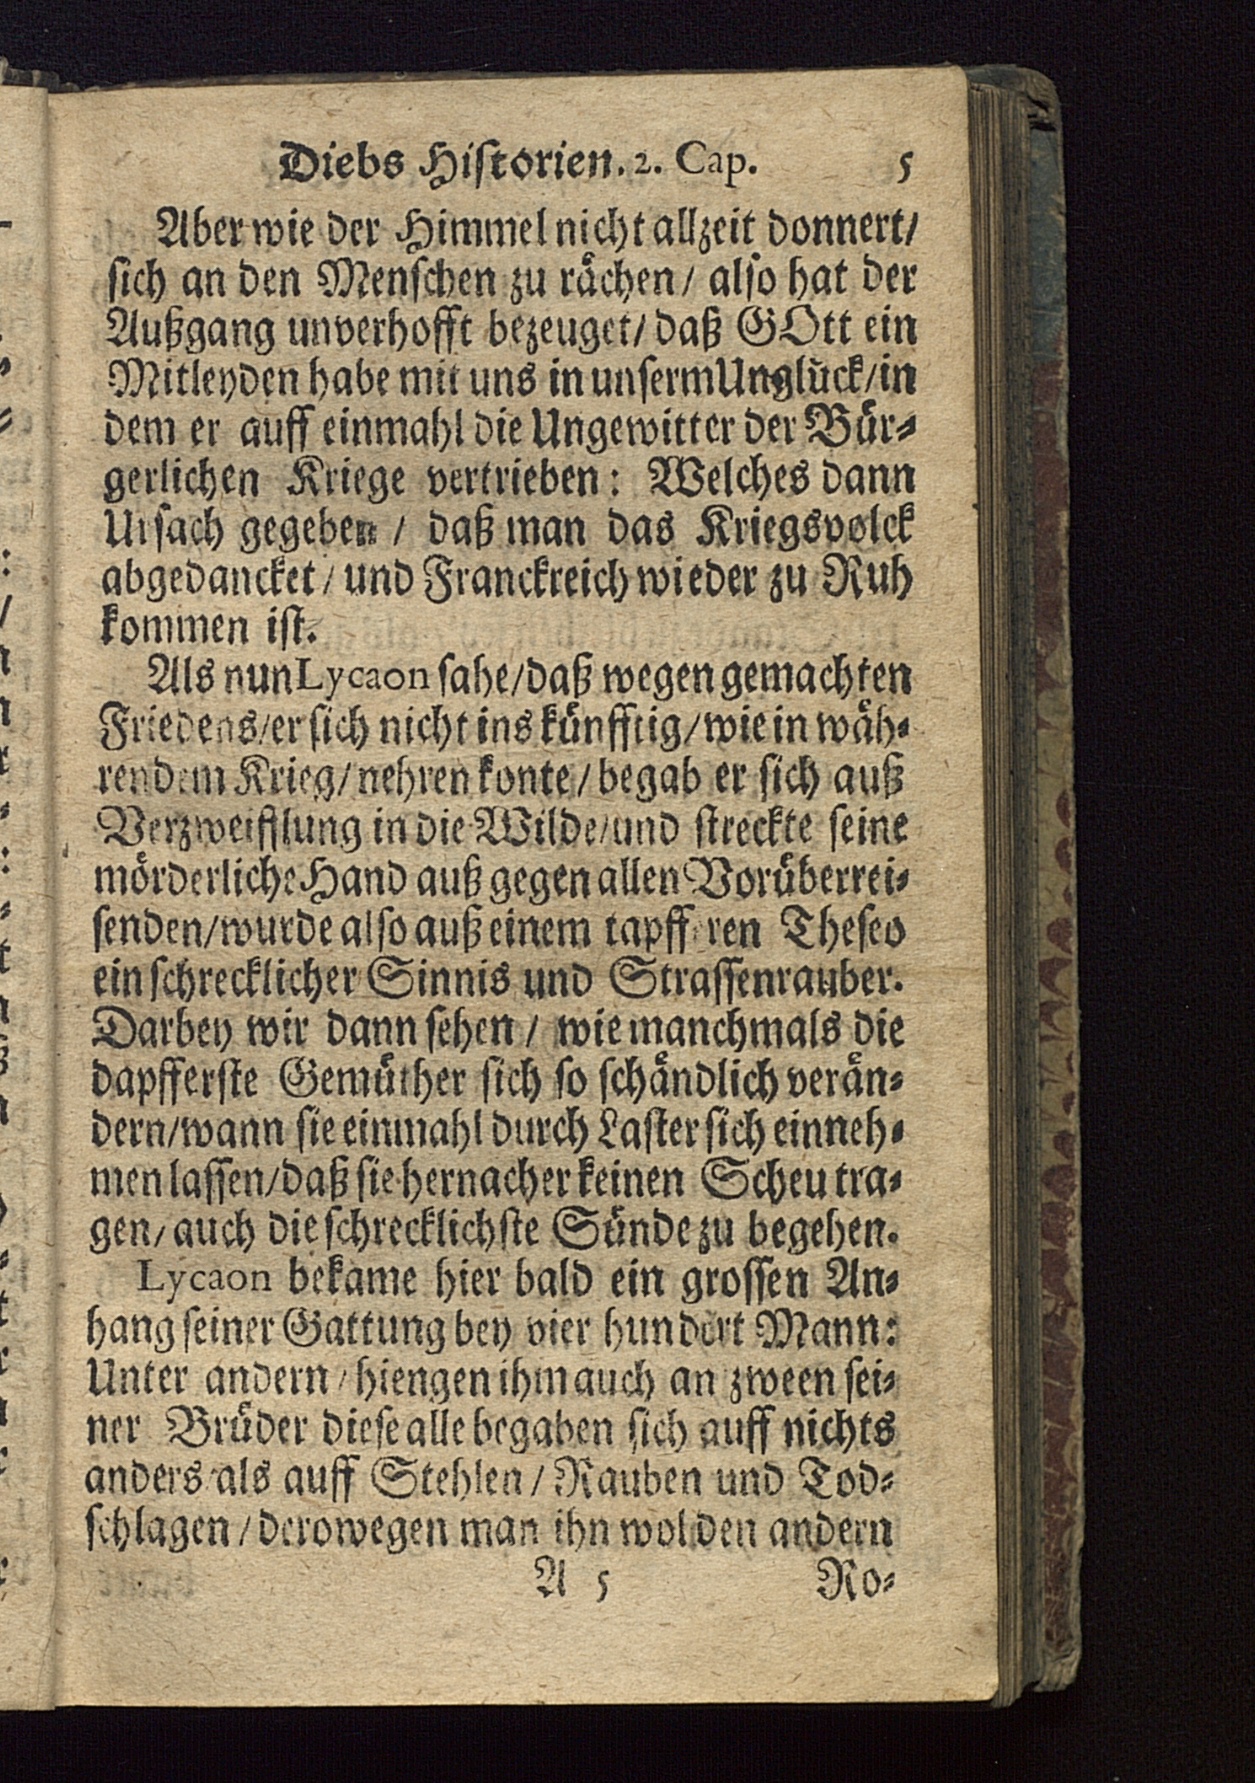 Diebs Historien. 2. Cap. 5
Aber wie der Himmel nicht allzeit donnert/
sich an den Menschen zu rächen/ also hat der
Außgang unverhofft bezeuget/ daß GOtt ein
Mitleyden habe mit uns in unserm Unglück/ in
dem er auff einmahl die Ungewitter der Bür-
gerlichen Kriege vertrieben: Welches dann
Ursach gegeben / daß man das Kriegsvolck
abgedancket/ und Franckreich wieder zu Ruh
kommen ist.
Als nun Lycaon sahe/ daß wegen gemachten
Friedens/ er sich nicht ins künfftig/ wie in wäh-
rendem Krieg/ nehren konte/ begab er sich auß
Verzweifflung in die Wilde/ und streckte seine
mörderliche Hand auß gegen allen Vorüberrei-
senden/ wurde also auß einem tapfferen Theseo
ein schrecklicher Sinnis und Strassenrauber.
Darbey wir dann sehen / wie manchmals die
dapfferste Gemüther sich so schändlich verän-
dern/ wann sie einmahl durch Laster sich einneh-
men lassen/ daß sie hernacher keinen Scheu tra-
gen/ auch die schrecklichste Sünde zu begehen.
Lycaon bekame hier bald ein grossen An-
hang seiner Gattung bey vier hundert Mann:
Unter andern / hiengen ihm auch an zween sei-
ner Brüder diese alle begaben sich auff nichts
anders als auff Stehlen / Rauben und Tod-
schlagen / derowegen man ihn wol den andern
A 5 Ro-